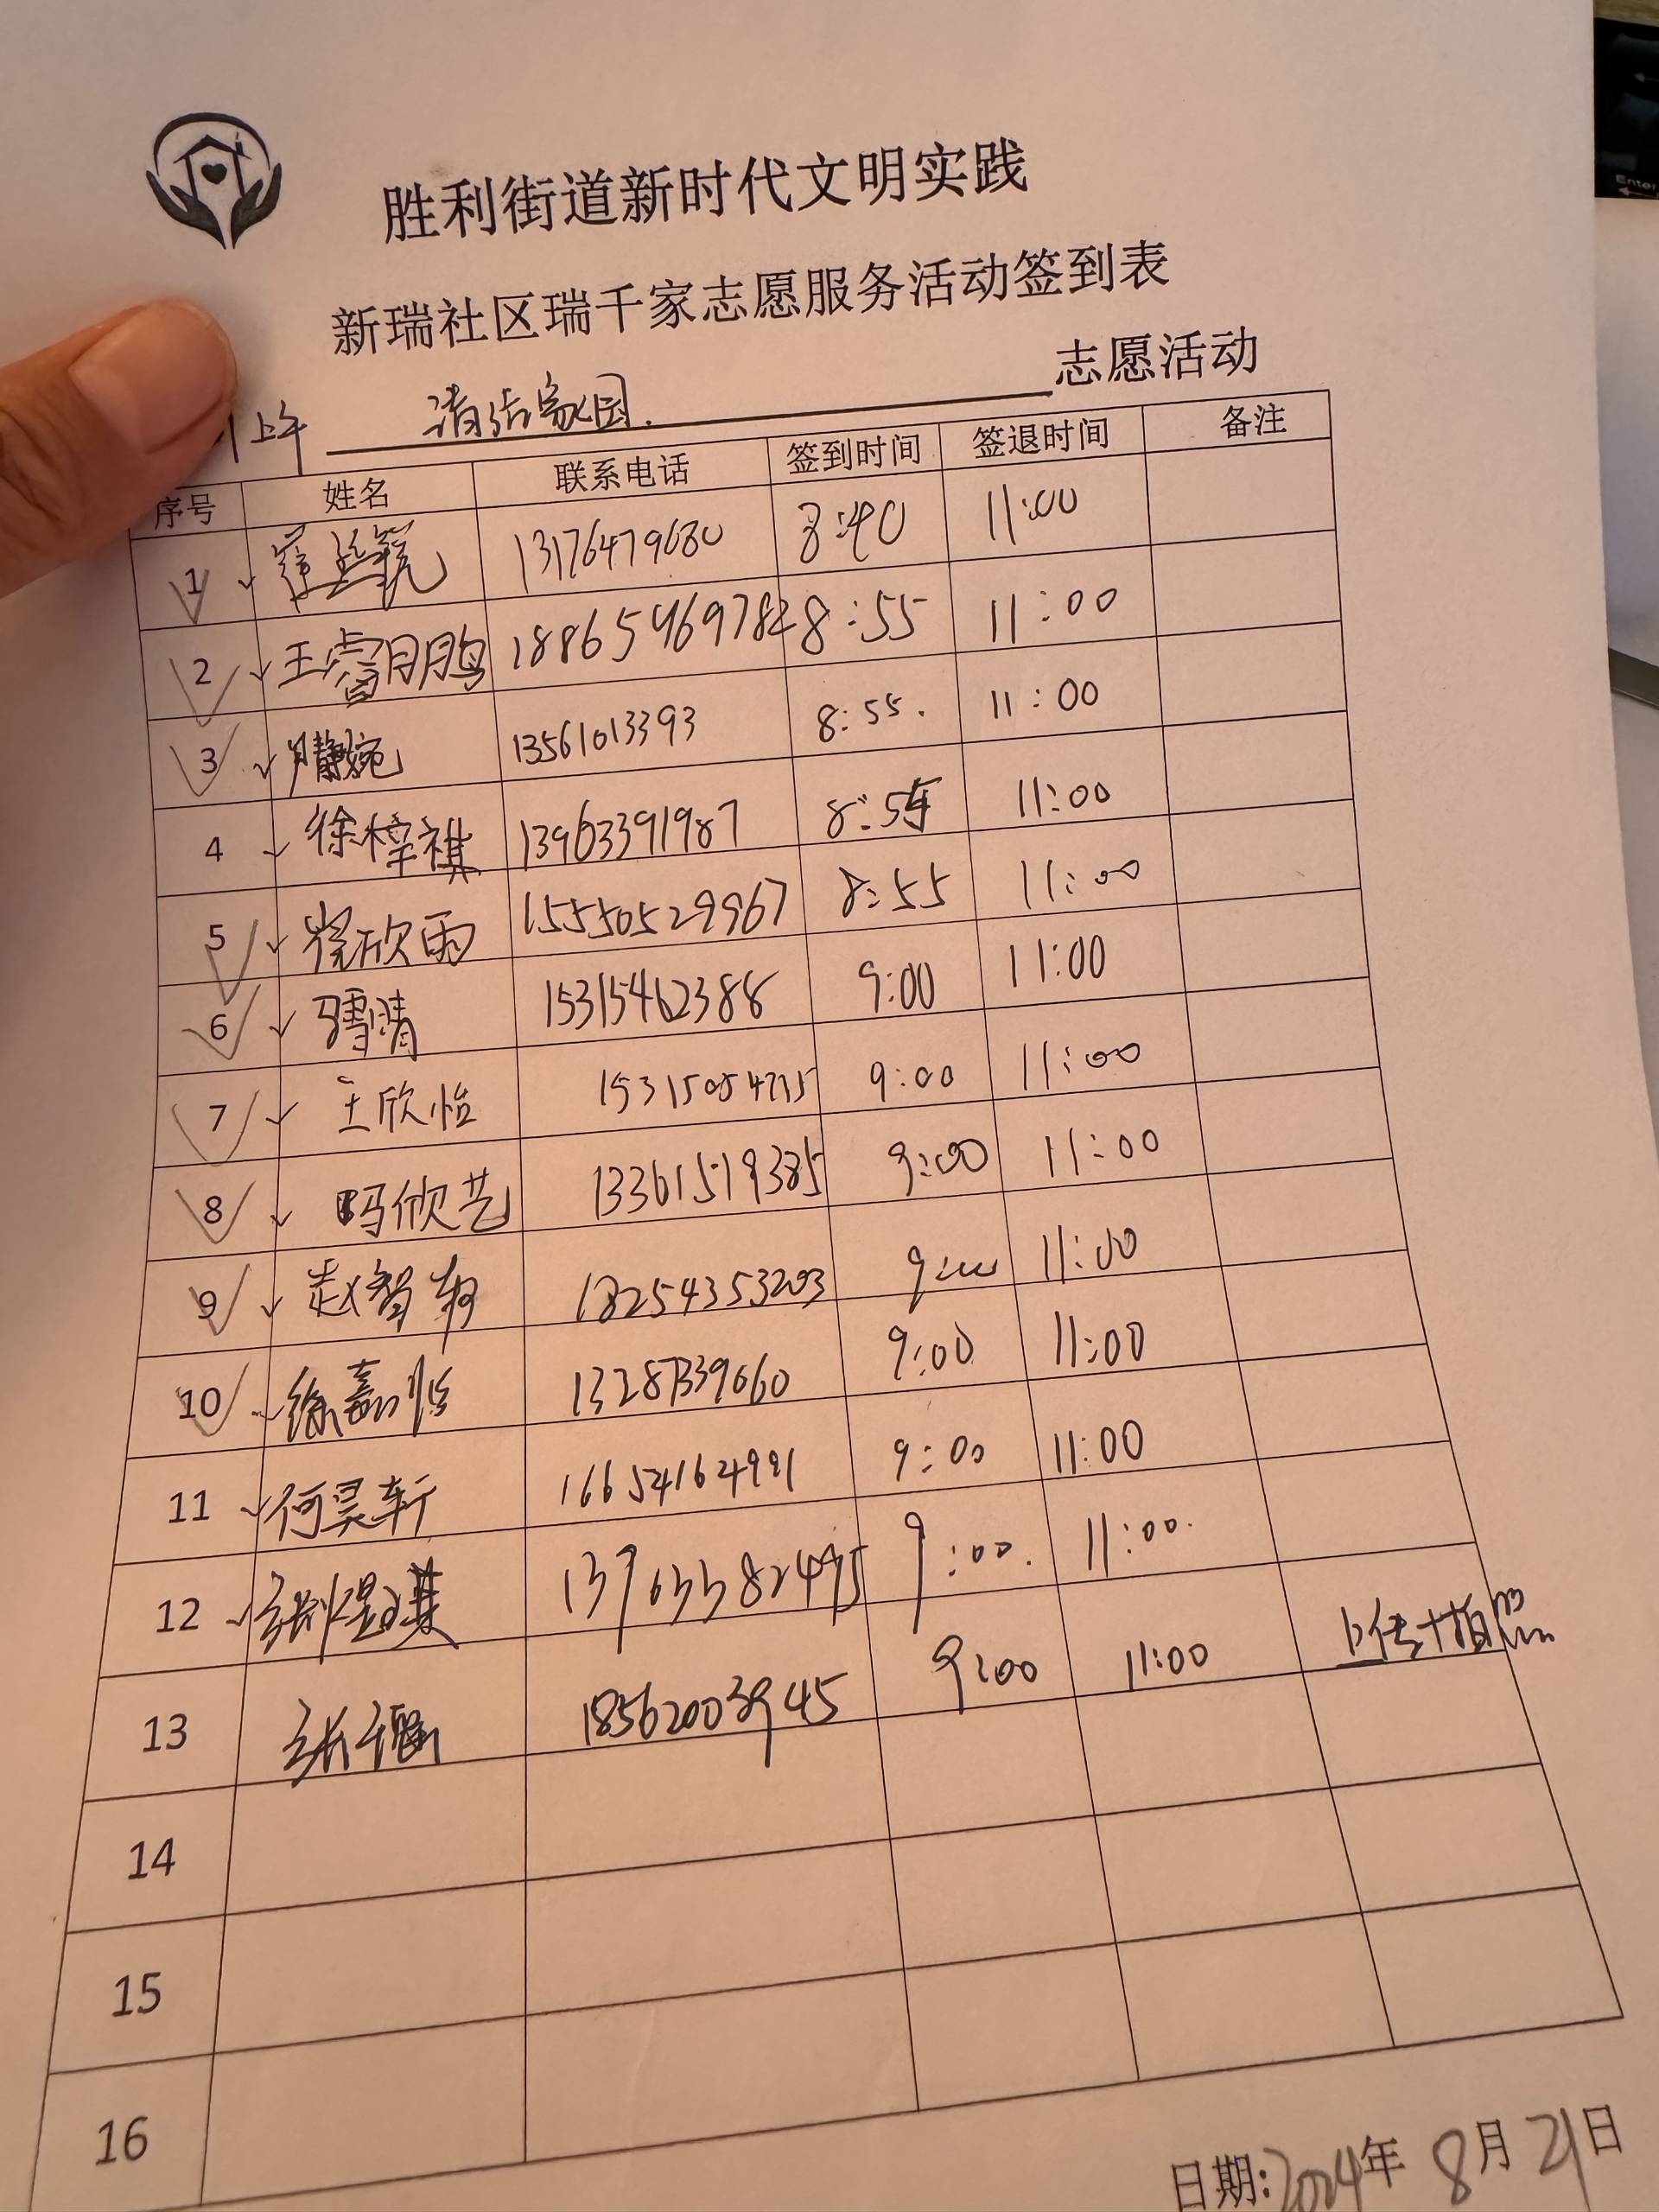 胜利街道新时代文明实践
新瑞社区瑞千家志愿服务活动签到表
上午 清洁家园. 志愿活动
序号 姓名 联系电话 签到时间 签退时间 备注
1 13176479680 8:40 11:00
2 王睿月鹏 18865469782 8:55 11:00
3 静婉 13561013393 8:55. 11:00
4 徐梓祺 13963391987 8:55 11:00
5 欣雨 15550529967 8:55 11:00
6 清 15315462388 9:00 11:00
7 王欣怡 15315054735 9:00 11:00
8 冯欣艺 13361519385 9:00 11:00
9 赵智 18254353203 9:00 11:00
10 徐嘉怡 13287339660 9:00 11:00
11 何昊轩 16654164991 9:00 11:00
12 9:00. 11:00.
13 张 18562003945 9:00 11:00 上传+拍照
14
15
16
日期:2024年 8月 21日
Enter